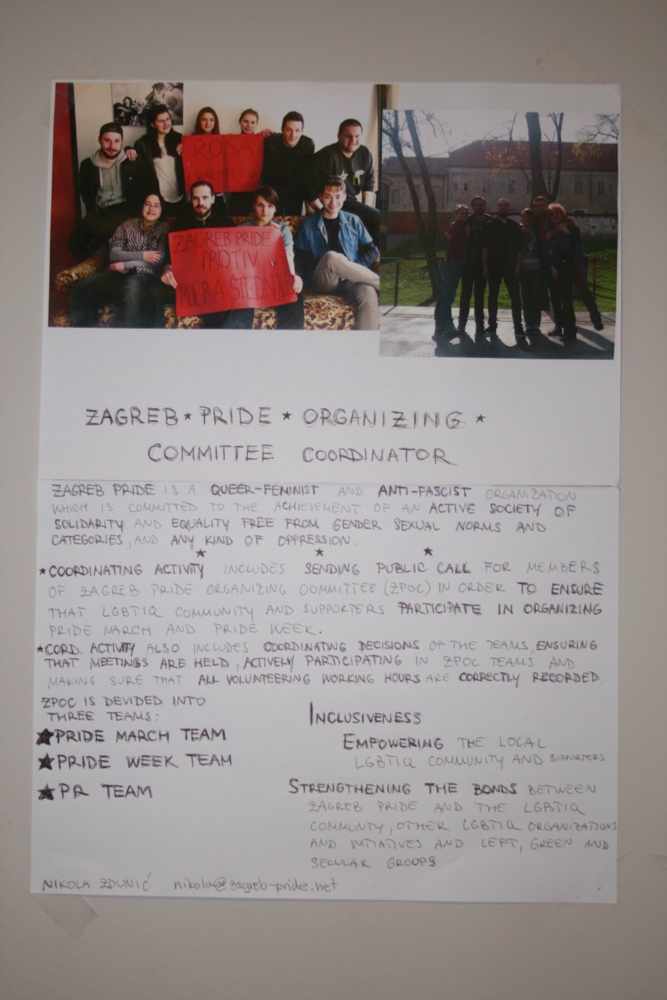 ROSA
ZAGREB PRIDE
PROTIV
MJERA ŠTEDNJE
ZAGREB ★ PRIDE ★ ORGANIZING ★
COMMITTEE COORDINATOR
ZAGREB PRIDE IS A QUEER-FEMINIST AND ANTI-FASCIST ORGANIZATION
WHICH IS COMMITTED TO THE ACHIEVEMENT OF AN ACTIVE SOCIETY OF
SOLIDARITY AND EQUALITY FREE FROM GENDER SEXUAL NORMS AND
CATEGORIES, AND ANY KIND OF OPPRESSION.
★ ★ ★
★COORDINATING ACTIVITY INCLUDES SENDING PUBLIC CALL FOR MEMBERS
OF ZAGREB PRIDE ORGANIZING COMMITTEE (ZPOC) IN ORDER TO ENSURE
THAT LGBTIQ COMMUNITY AND SUPPORTERS PARTICIPATE IN ORGANIZING
PRIDE MARCH AND PRIDE WEEK.
★CORD. ACTIVITY ALSO INCLUDES COORDINATING DECISIONS OF THE TEAMS, ENSURING
THAT MEETINGS ARE HELD, ACTIVELY PARTICIPATING IN ZPOC TEAMS AND
MAKING SURE THAT ALL VOLUNTEERING WORKING HOURS ARE CORRECTLY RECORDED.
ZPOC IS DEVIDED INTO
THREE TEAMS:
★PRIDE MARCH TEAM
★PRIDE WEEK TEAM
★PR TEAM
INCLUSIVENESS
EMPOWERING THE LOCAL
LGBTIQ COMMUNITY AND SUPPORTERS
STRENGTHENING THE BONDS BETWEEN
ZAGREB PRIDE AND THE LGBTIQ
COMMUNTY, OTHER LGBTIQ ORGANIZATIONS
AND INTIATIVES AND LEFT, GREEN AND
SECULAR GROOPS
NIKOLA ZDUNIĆ nikola@zagreb-pride.net